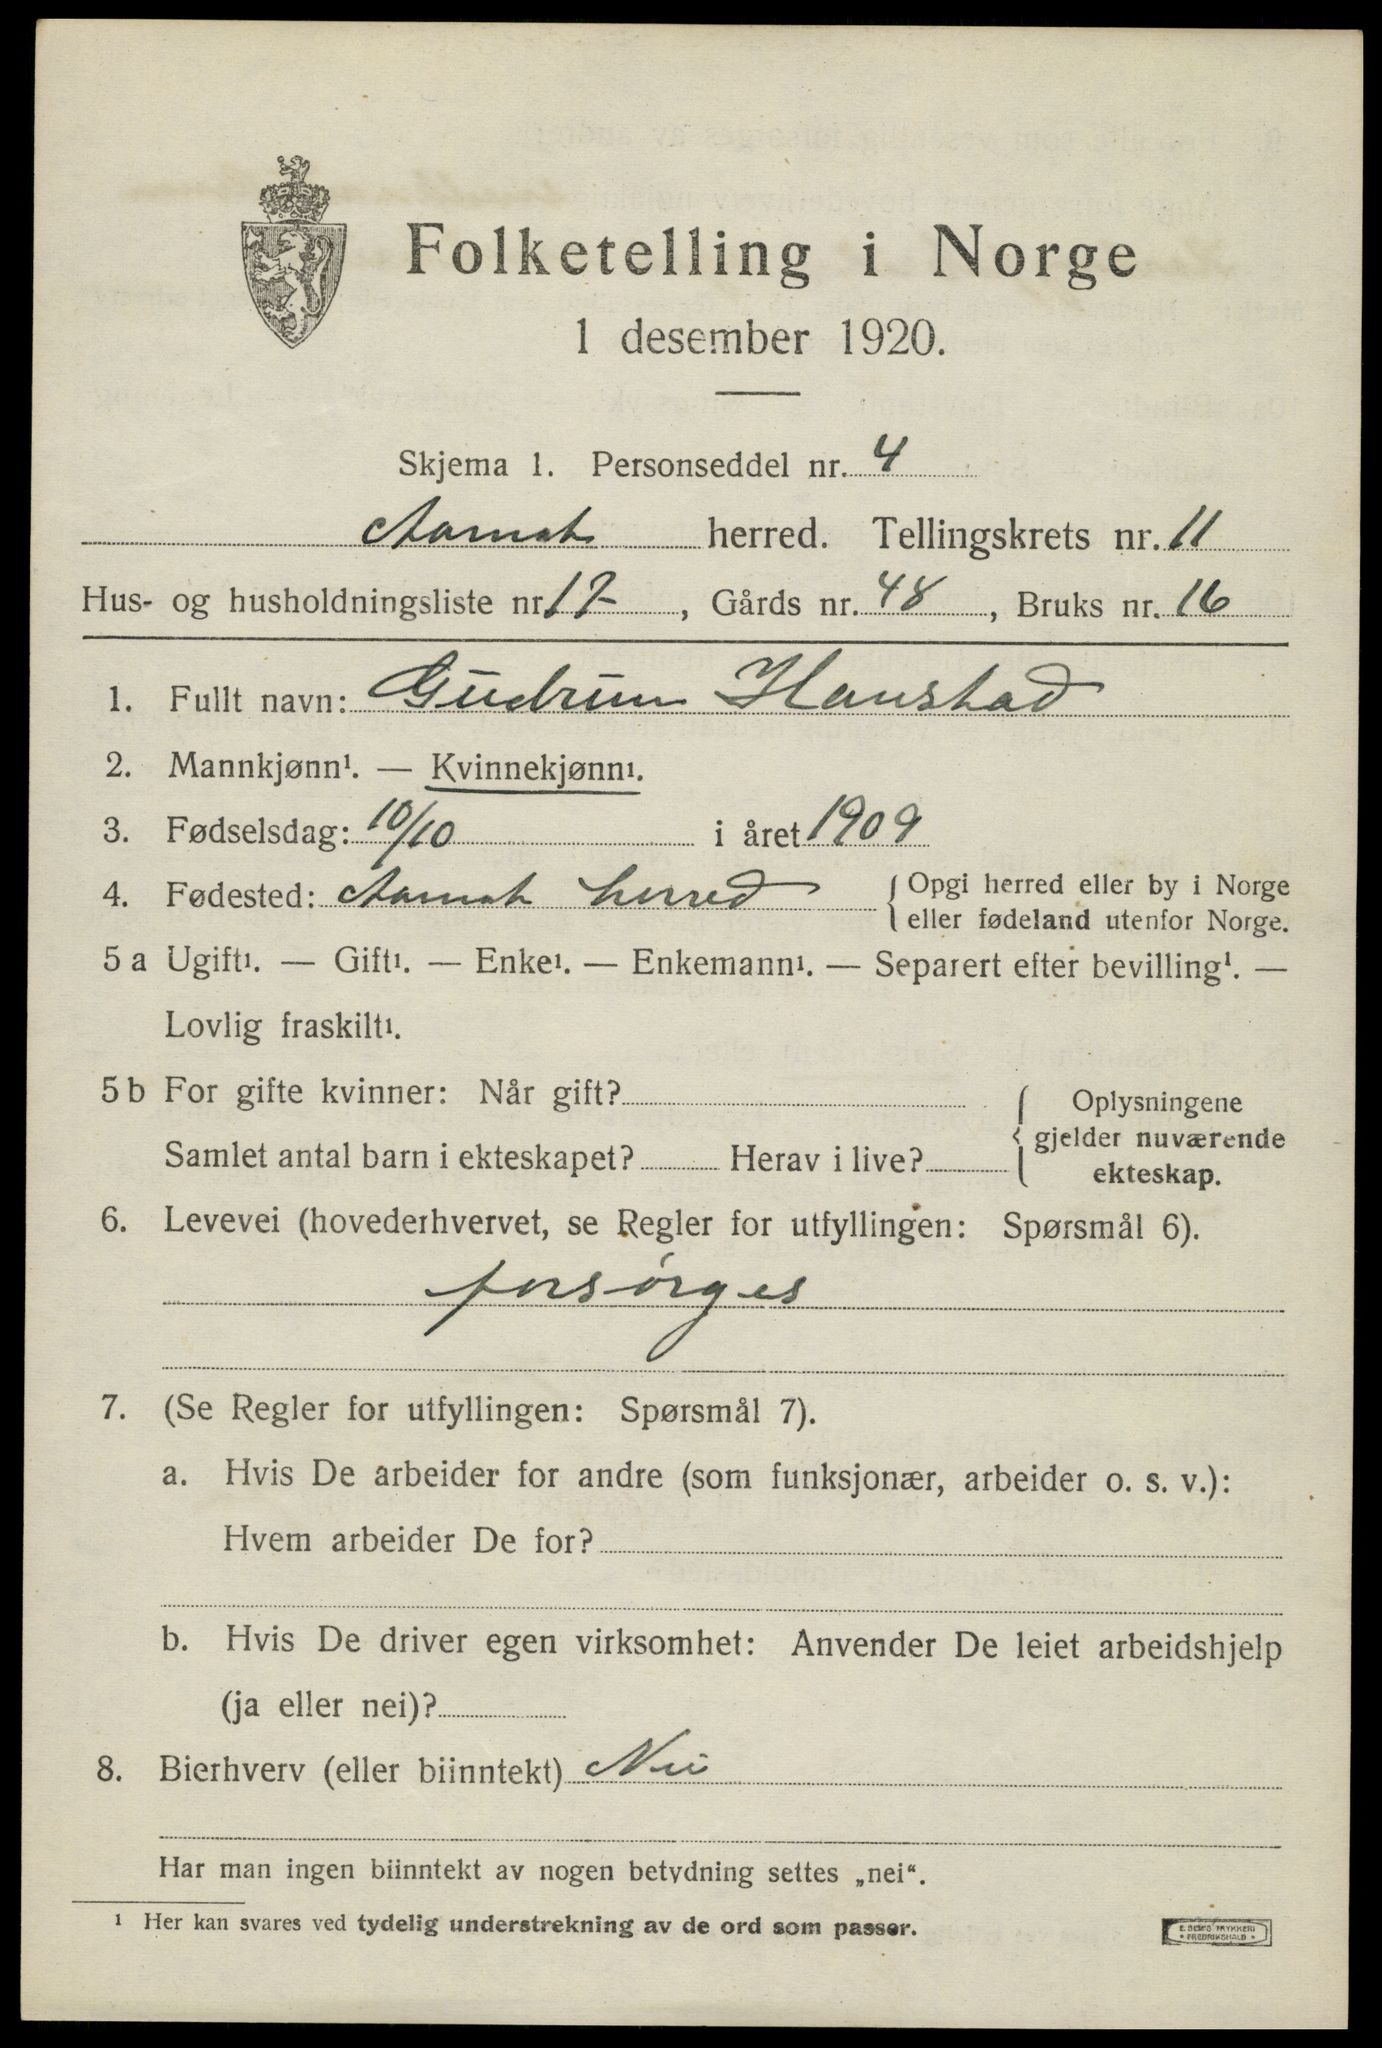 Folketelling i Norge
1 desember 1920.
Skjema 1. Personseddel nr. 4
Aamot herred. Tellingskrets nr. 11
Hus- og husholdningsliste nr. 17, Gårds nr. 48, Bruks nr. 16
1. Fullt navn: Gudrun Hanstad
2. Mannkjønn¹. — Kvinnekjønn¹.
3. Fødselsdag: 10/10 i året 1909
4. Fødested: Aamot herred {Opgi herred eller by i Norge
eller fødeland utenfor Norge.
5 a Ugift¹. — Gift¹. — Enke¹. — Enkemann¹. — Separert efter bevilling¹. —
Lovlig fraskilt¹.
5 b For gifte kvinner: Når gift?
Samlet antal barn i ekteskapet? Herav i live?
{Oplysningene
gjelder nuværende
ekteskap.
6. Levevei (hovederhvervet, se Regler for utfyllingen: Spørsmål 6).
forsørges
7. (Se Regler for utfyllingen: Spørsmål 7).
a. Hvis De arbeider for andre (som funksjonær, arbeider o. s. v.):
Hvem arbeider De for?
b. Hvis De driver egen virksomhet: Anvender De leiet arbeidshjelp
(ja eller nei)?
8. Bierhverv (eller biinntekt) Nei
Har man ingen biinntekt av nogen betydning settes „nei“.
¹ Her kan svares ved tydelig understrekning av de ord som passer.
E. SEMS TRYKKERI
FREDRIKSHALD